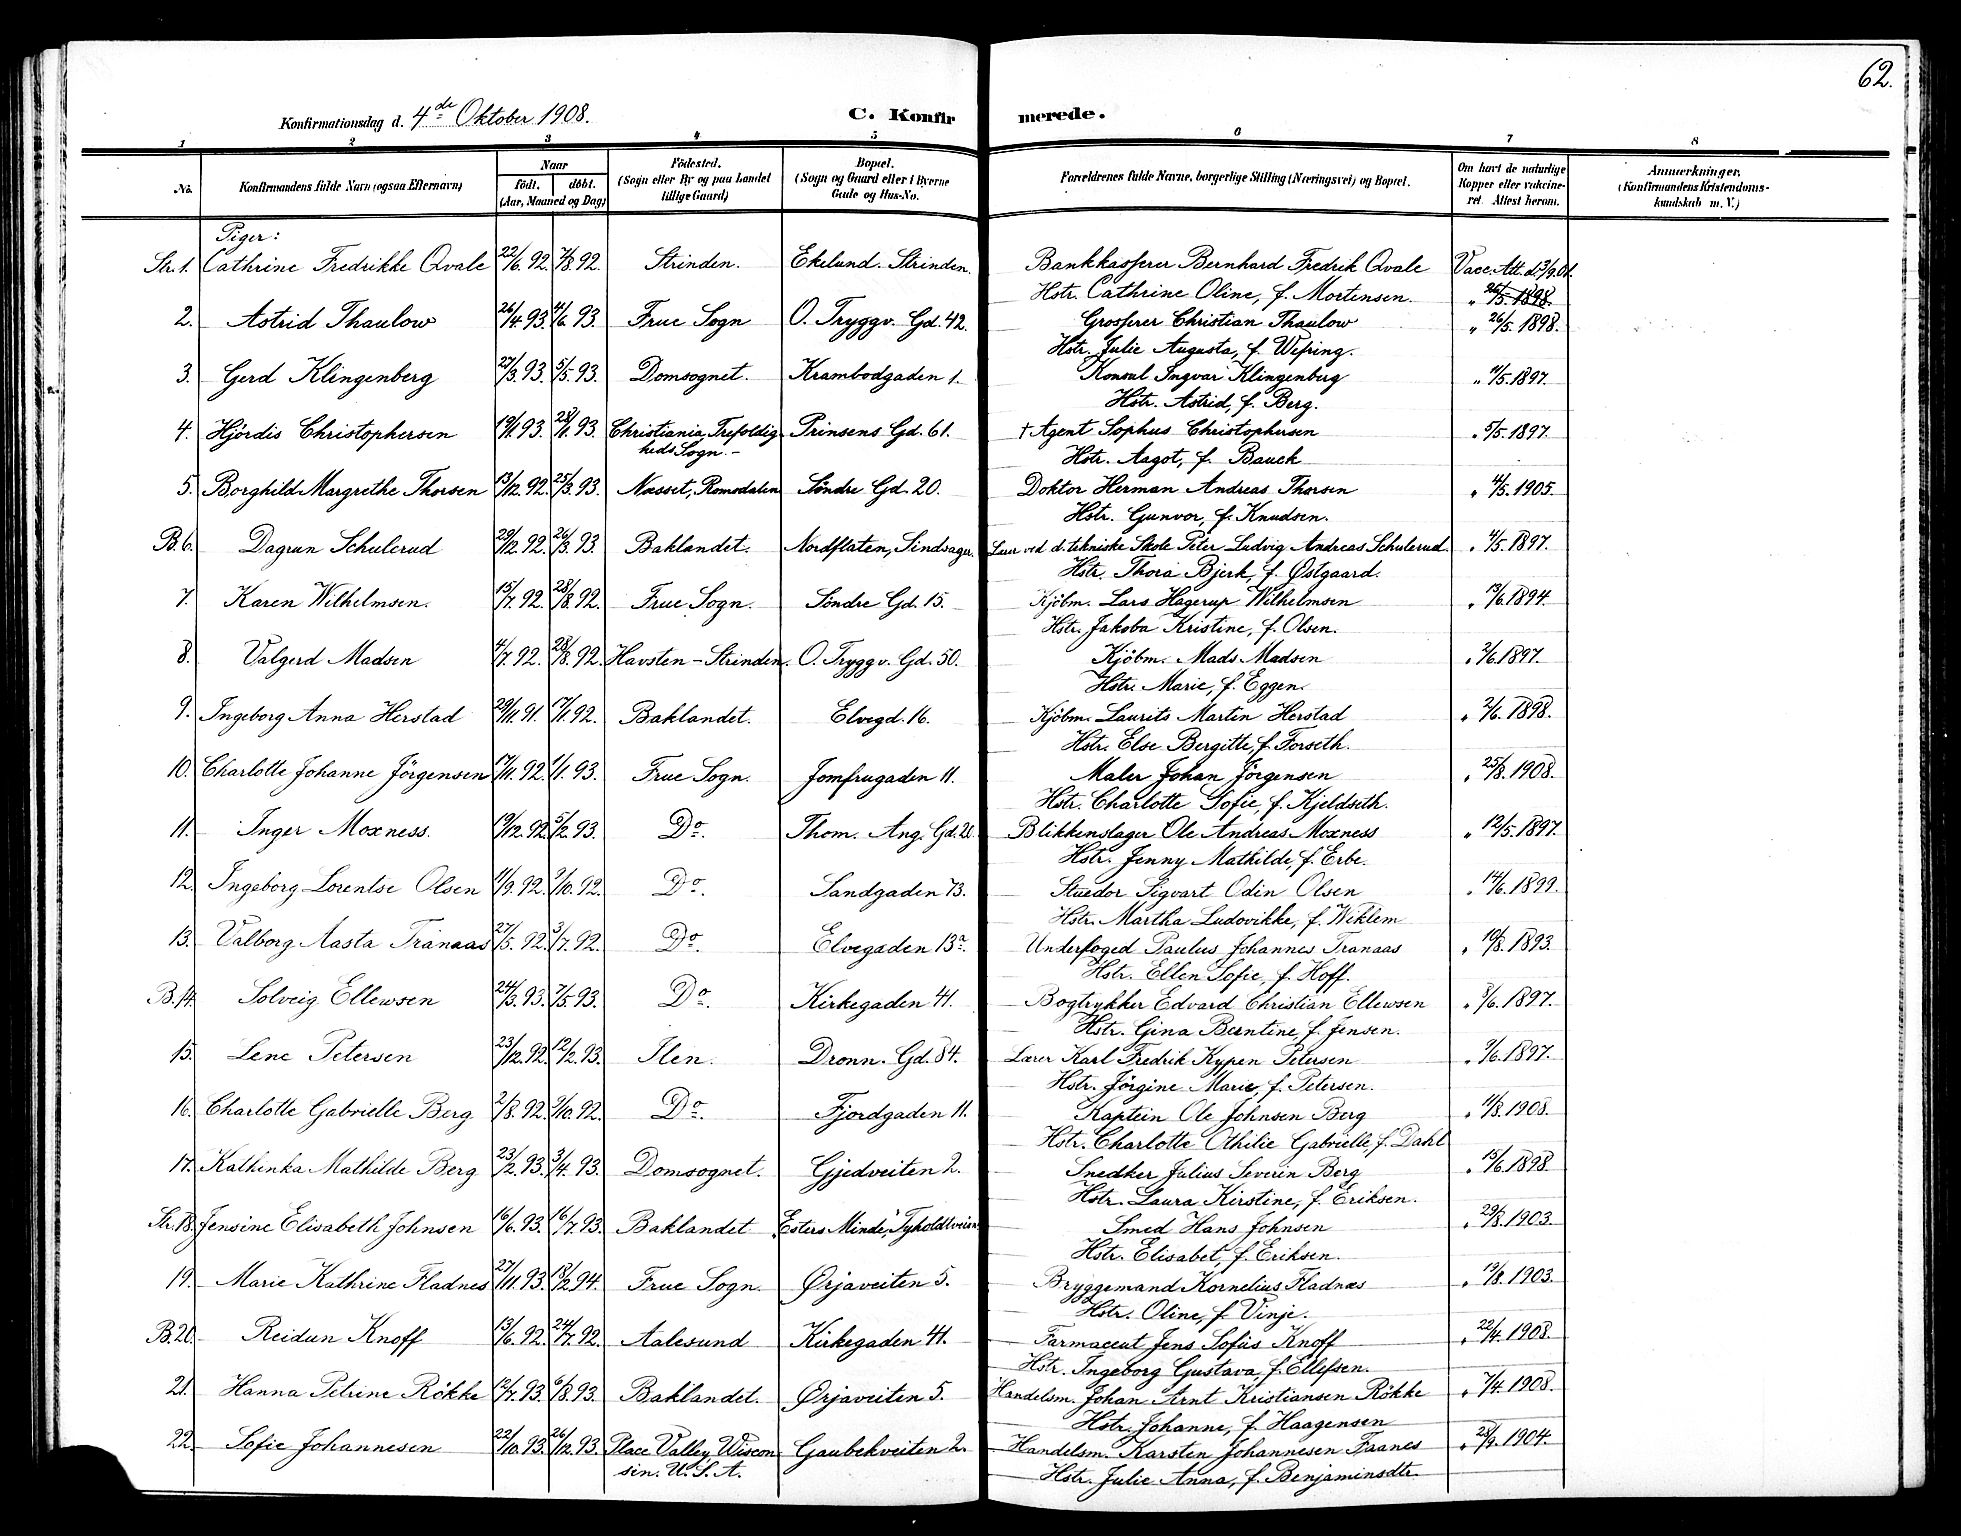 62.
Konfirmationsdag d. 4de Oktober 1908. C. Konfirmerede.
1 2 3 4 5 6 7 8
No. Konfirmandens fulde Navn (ogsaa Efternavn) Naar födt. döbt. (Aar, Maaned og Dag) Födested. (Sogn eller By og paa Landet tillige Gaard) Bopæl. (Sogn og Gaard eller i Byerne Gade og Hus-No. Forældrenes fulde Navne, borgerlige Stilling (Næringsvei) og Bopæl. Om havt de naturlige Kopper eller vakcineret. Attest herom. Anmærkninger, (Konfirmandens Kristendomskundskab m. V.)
Piger:
Str. 1. Cathrine Fredrikke Qvale 22/6 92. 7/8 92. Strinden. Ekelund. Strinden. Bankkasserer Bernhard Fredrik Qvale Vacc. Att. d. 3/9 01.
Hstr. Cathrine Oline, f. Mortensen. " 26/5 1898.
2. Astrid Thaulow 26/4 93. 4/6 93. Frue Sogn O. Tryggv. Gd. 42. Grosserer Christian Thaulow " 26/5 1898.
Hstr. Julie Augusta, f. Wesring.
3. Gerd Klingenberg 27/3 93. 5/5 93. Domsognet. Krambodgaden 1. Konsul Ingvar Klingenberg " 11/5 1897.
Hstr. Astrid, f. Berg.
4. Hjördis Christophersen 19/1 93. 28/11 93. Christiania, Trefoldig- Prinsens Gd. 61. † Agent Sophus Christophersen " 5/5 1897.
heds Sogn. Hstr. Aagot, f. Bauck
5. Borghild Margrethe Thorsen 13/12 92. 25/3 93. Næsset, Romsdalen Söndre Gd. 20. Doktor Herman Andreas Thorsen " 4/5 1905.
Hstr. Gunvor, f. Knudsen.
B. 6. Dagrun Schulerud 29/12 92. 26/3 93. Baklandet. Nordflaten, Sindsager. Lærer ved d. tekniske Skole Peter Ludvig Andreas Schulerud. " 4/5 1897.
Hstr. Thora Bjerk, f. Østgaard.
7. Karen Wilhelmsen. 15/7 92. 28/8 92. Frue Sogn. Söndre Gd. 15. Kjöbm. Lars Hagerup Wilhelmsen " 13/6 1894.
Hstr. Jakoba Kristine, f. Olsen.
8. Valgerd Madsen 4/7 92. 28/8 92. Havsten - Strinden. O. Tryggv. Gd. 50. Kjöbm. Mads Madsen " 2/6 1897.
Hstr. Marie, f. Eggen.
9. Ingeborg Anna Herstad 29/11 91. 17/1 92. Baklandet. Elvegd. 16. Kjöbm. Laurits Martin Herstad " 2/6 1898.
Hstr. Else Bergitte, f. Forseth.
10. Charlotte Johanne Jörgensen 17/11 92. 1/1 93. Frue Sogn. Jomfrugaden 11. Maler Johan Jörgensen " 25/8 1908.
Hstr. Charlotte Sofie, f. Kjeldseth.
11. Inger Moxness. 19/12 92. 5/2 93. Do. Thom. Ang. Gd. 20. Blikkenslager Ole Andreas Moxness " 12/5 1897.
Hstr. Jenny Mathilde, f. Erbe.
12. Ingeborg Lorentse Olsen 11/9 92. 9/10 92. Do. Sandgaden 73. Stuedor Sigvart Odin Olsen " 14/6 1899.
Hstr. Martha Ludovikke, f. Wiklem
13. Valborg Aasta Tranaas 27/5 92. 3/7 92. Do. Elvegaden 13a. Underfoged Paulus Johannes Tranaas " 10/8 1893.
Hstr. Ellen Sofie, f. Hoff.
B. 14. Solveig Ellewsen 24/3 93. 7/5 93. Do. Kirkegaden 41. Bogtrykker Edvard Christian Ellewsen " 8/6 1897.
Hstr. Gina Berntine, f. Jensen.
15. Lene Petersen 23/12 92. 12/2 93. Ilen. Dronn. Gd. 84. Lærer Karl Fredrik Kypen Petersen " 9/6 1897.
Hstr. Jörgine Marie, f. Petersen.
16. Charlotte Gabrielle Berg 2/8 92. 9/10 92. Do. Fjordgaden 11. Kaptein Ole Johnsen Berg " 11/8 1908.
Hstr. Charlotte Othilie Gabrielle, f. Dahl
17. Kathinka Mathilde Berg 23/2 93. 3/4 93. Domsognet. Gjedveiten 2. Snedker Julius Severin Berg " 15/6 1898.
Hstr. Laura Kirstine, f. Eriksen.
Str. 18. Jensine Elisabeth Johnsen 16/6 93. 16/7 93. Baklandet "Esters Minde", Tyholdtveien Smed Hans Johnsen " 29/8 1903.
Hstr. Elisabet, f. Eriksen.
19. Marie Kathrine Fladnes 27/11 93. 18/2 94. Frue Sogn. Ørjaveiten 5. Bryggemand Kornelius Fladnæs " 19/8 1903.
Hstr. Oline, f. Vinje.
B. 20. Reidun Knoff 13/6 92. 24/7 92. Aalesund Kirkegaden 41. Farmaceut Jens Sofus Knoff " 22/4 1908.
Hstr. Ingeborg Gustava, f. Ellefsen.
21. Hanna Petrine Rökke 12/7 93. 6/8 93. Baklandet. Ørjaveiten 5. Handelsm. Johan Arnt Kristiansen Rökke " 7/4 1908.
Hstr. Johanne, f. Haagensen
22. Sofie Johannesen 22/10 93. 26/12 93. Place Valley Wiscon- Gaubekveiten 2. Handelsm. Karsten Johannesen Franes " 28/9 1904.
sin. U.S.A. Hstr. Julie Anna, f. Benjaminsdtr.